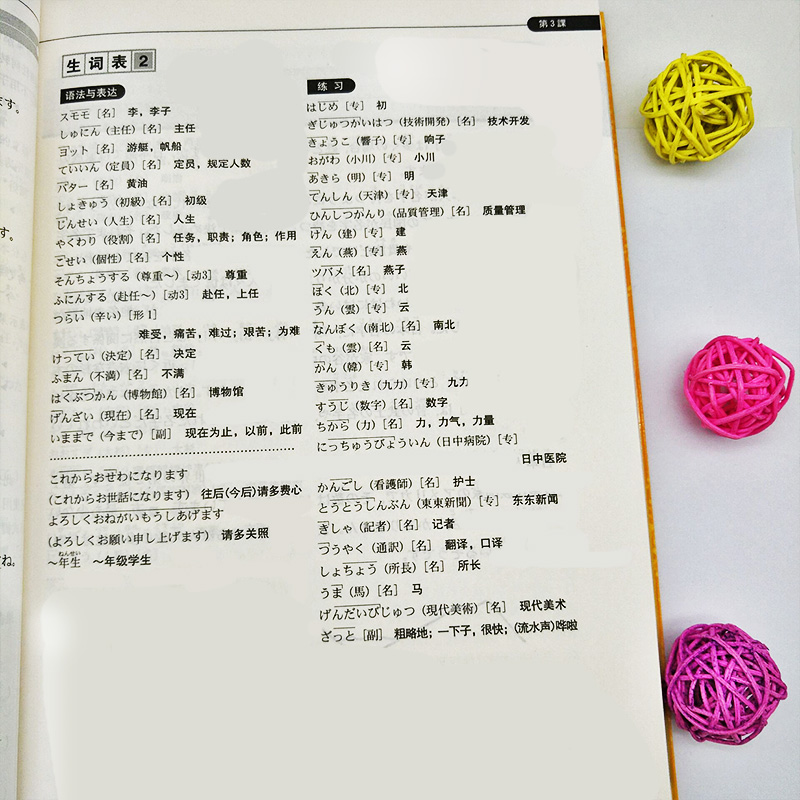 第3課
生词表2
语法与表达
スモモ［名］ 李，李子
しゅにん（主任）［名］ 主任
ヨット［名］ 游艇，帆船
ていいん（定員）［名］ 定员，规定人数
バター［名］ 黄油
しょきゅう（初級）［名］ 初级
じんせい（人生）［名］ 人生
やくわり（役割）［名］ 任务，职责；角色；作用
こせい（個性）［名］ 个性
そんちょうする（尊重～）［动3］ 尊重
ふにんする（赴任～）［动3］ 赴任，上任
つらい（辛い）［形1］
难受，痛苦，难过；艰苦；为难
けってい（決定）［名］ 决定
ふまん（不満）［名］ 不满
はくぶつかん（博物館）［名］ 博物馆
げんざい（現在）［名］ 现在
いままで（今まで）［副］ 现在为止，以前，此前
これからおせわになります
(これからお世話になります) 往后(今后)请多费心
よろしくおねがいもうしあげます
(よろしくお願い申し上げます) 请多关照
ねんせい
～年生 ～年级学生
练习
はじめ［专］ 初
ぎじゅつかいはつ（技術開発）［名］ 技术开发
きょうこ（響子）［专］ 响子
おがわ（小川）［专］ 小川
あきら（明）［专］ 明
てんしん（天津）［专］ 天津
ひんしつかんり（品質管理）［名］ 质量管理
けん（建）［专］ 建
えん（燕）［专］ 燕
ツバメ［名］ 燕子
ぼく（北）［专］ 北
うん（雲）［专］ 云
なんぼく（南北）［名］ 南北
くも（雲）［名］ 云
かん（韓）［专］ 韩
きゅうりき（九力）［专］ 九力
すうじ（数字）［名］ 数字
ちから（力）［名］ 力，力气，力量
にっちゅうびょういん（日中病院）［专］
日中医院
かんごし（看護師）［名］ 护士
とうとうしんぶん（東東新聞）［专］ 东东新闻
きしゃ（記者）［名］ 记者
つうやく（通訳）［名］ 翻译，口译
しょちょう（所長）［名］ 所长
うま（馬）［名］ 马
げんだいびじゅつ（現代美術）［名］ 现代美术
ざっと［副］ 粗略地；一下子，很快；(流水声)哗啦
ます。
す。
ね。